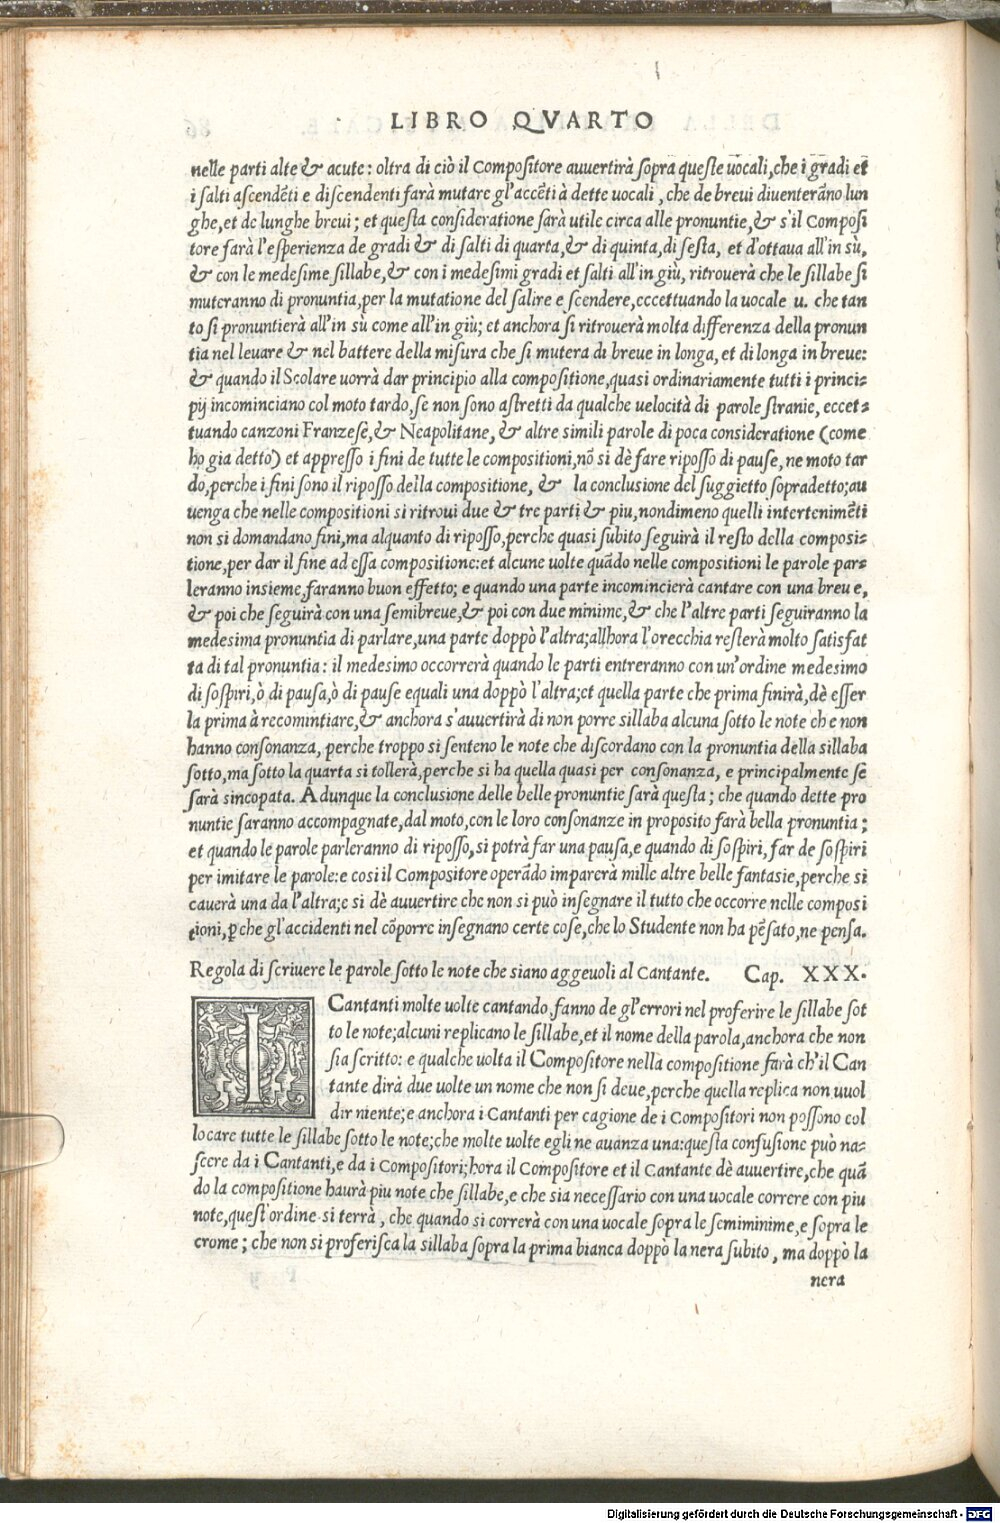 LIBRO QVARTO
nelle parti alte & acute: oltra di ciò il Compositore auuertirà sopra queste uocali, che i gradi et
i salti ascendẽti e discendenti farà mutare gl'accẽti à dette uocali, che de breui diuenterãno lun
ghe, et de lunghe breui; et questa consideratione sarà utile circa alle pronuntie, & s'il Composi
tore farà l'esperienza de gradi & di salti di quarta, & di quinta, di sesta, et d'ottaua all'in sù,
& con le medesime sillabe, & con i medesimi gradi et salti all'in giù, ritrouerà che le sillabe si
muteranno di pronuntia, per la mutatione del salire e scendere, eccettuando la uocale u. che tan
to si pronuntierà all'in sù come all'in giù; et anchora si ritrouerà molta differenza della pronun
tia nel leuare & nel battere della misura che si mutera di breue in longa, et di longa in breue:
& quando il Scolare uorrà dar principio alla compositione, quasi ordinariamente tutti i princi=
pij incominciano col moto tardo, se non sono astretti da qualche uelocità di parole stranie, eccet=
tuando canzoni Franzese, & Neapolitane, & altre simili parole di poca consideratione (come
ho gia detto) et appresso i fini de tutte le compositioni, nõ si dè fare riposso di pause, ne moto tar
do, perche i fini sono il riposso della compositione, & la conclusione del suggietto sopradetto; au
uenga che nelle compositioni si ritroui due & tre parti & piu, nondimeno quelli intertenimẽti
non si domandano fini, ma alquanto di riposso, perche quasi subito seguirà il resto della composi=
tione, per dar il fine ad essa compositione: et alcune uolte quãdo nelle compositioni le parole par=
leranno insieme, faranno buon effetto; e quando una parte incomincierà cantare con una breue,
& poi che seguirà con una semibreue, & poi con due minime, & che l'altre parti seguiranno la
medesima pronuntia di parlare, una parte doppò l'altra; allhora l'orecchia resterà molto satisfat
ta di tal pronuntia: il medesimo occorrerà quando le parti entreranno con un'ordine medesimo
di sospiri, ò di pausa, ò di pause equali una doppò l'altra; et quella parte che prima finirà, dè esser
la prima à recomintiare, & anchora s'auuertirà di non porre sillaba alcuna sotto le note che non
hanno consonanza, perche troppo si senteno le note che discordano con la pronuntia della sillaba
sotto, ma sotto la quarta si tollerà, perche si ha quella quasi per consonanza, e principalmente se
sarà sincopata. Adunque la conclusione delle belle pronuntie sarà questa; che quando dette pro
nuntie saranno accompagnate, dal moto, con le loro consonanze in proposito farà bella pronuntia;
et quando le parole parleranno di riposso, si potrà far una pausa, e quando di sospiri, far de sospiri
per imitare le parole: e cosi il Compositore operãdo imparerà mille altre belle fantasie, perche si
cauerà una da l'altra; e si dè auuertire che non si può insegnare il tutto che occorre nelle composi
tioni, ꝑche gl'accidenti nel cõporre insegnano certe cose, che lo Studente non ha pẽsato, ne pensa.
Regola di scriuere le parole sotto le note che siano aggeuoli al Cantante. Cap. XXX.
I Cantanti molte uolte cantando, fanno de gl'errori nel proferire le sillabe sot
to le note; alcuni replicano le sillabe, et il nome della parola, anchora che non
sia scritto: e qualche uolta il Compositore nella compositione farà ch'il Can
tante dirà due uolte un nome che non si deue, perche quella replica non uuol
dir niente; e anchora i Cantanti per cagione de i Compositori non possono col
locare tutte le sillabe sotto le note; che molte uolte egli ne auanza una: questa confusione può na=
scere da i Cantanti, e da i Compositori; hora il Compositore et il Cantante dè auuertire, che quã
do la compositione haurà piu note che sillabe, e che sia necessario con una uocale correre con piu
note, quest'ordine si terrà, che quando si correrà con una uocale sopra le semiminime, e sopra le
crome; che non si proferisca la sillaba sopra la prima bianca doppò la nera subito, ma doppò la
nera
Digitalisierung gefördert durch die Deutsche Forschungsgemeinschaft - DFG